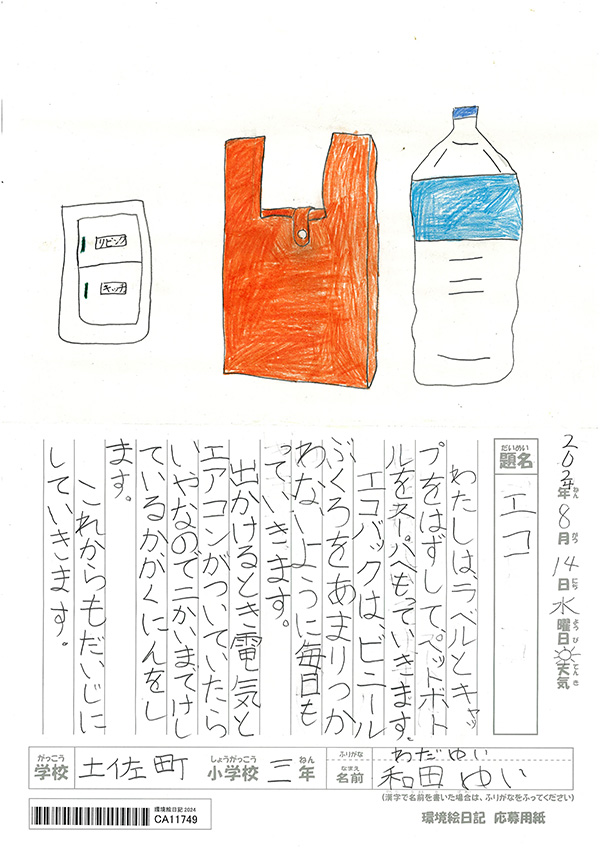 リビング
キッチ
2024年ねん8月がつ14日にち水曜日ようび天気てんき
だいめい
題名
エコ
わたしは、ラベルとキャッ
プをはずして、ペットボト
ルをスーパへもっていきます。
エコバックは、ビニール
ぶくろをあまりつか
わないように毎日も
っていきます。
出かけるとき電気と
エアコンがついていたら
いやなのでニかいまてけし
ているかがくにんをし
ます。
これからもだいじに
していきます。
がっこう しょうがっこう ねん
学校 土佐町 小学校 三年
ふりがな わだゆい
なまえ
名前 和田ゆい
(漢字で名前を書いた場合は、ふりがなをふってください)
環境絵日記 2024
CA11749
環境絵日記 応募用紙